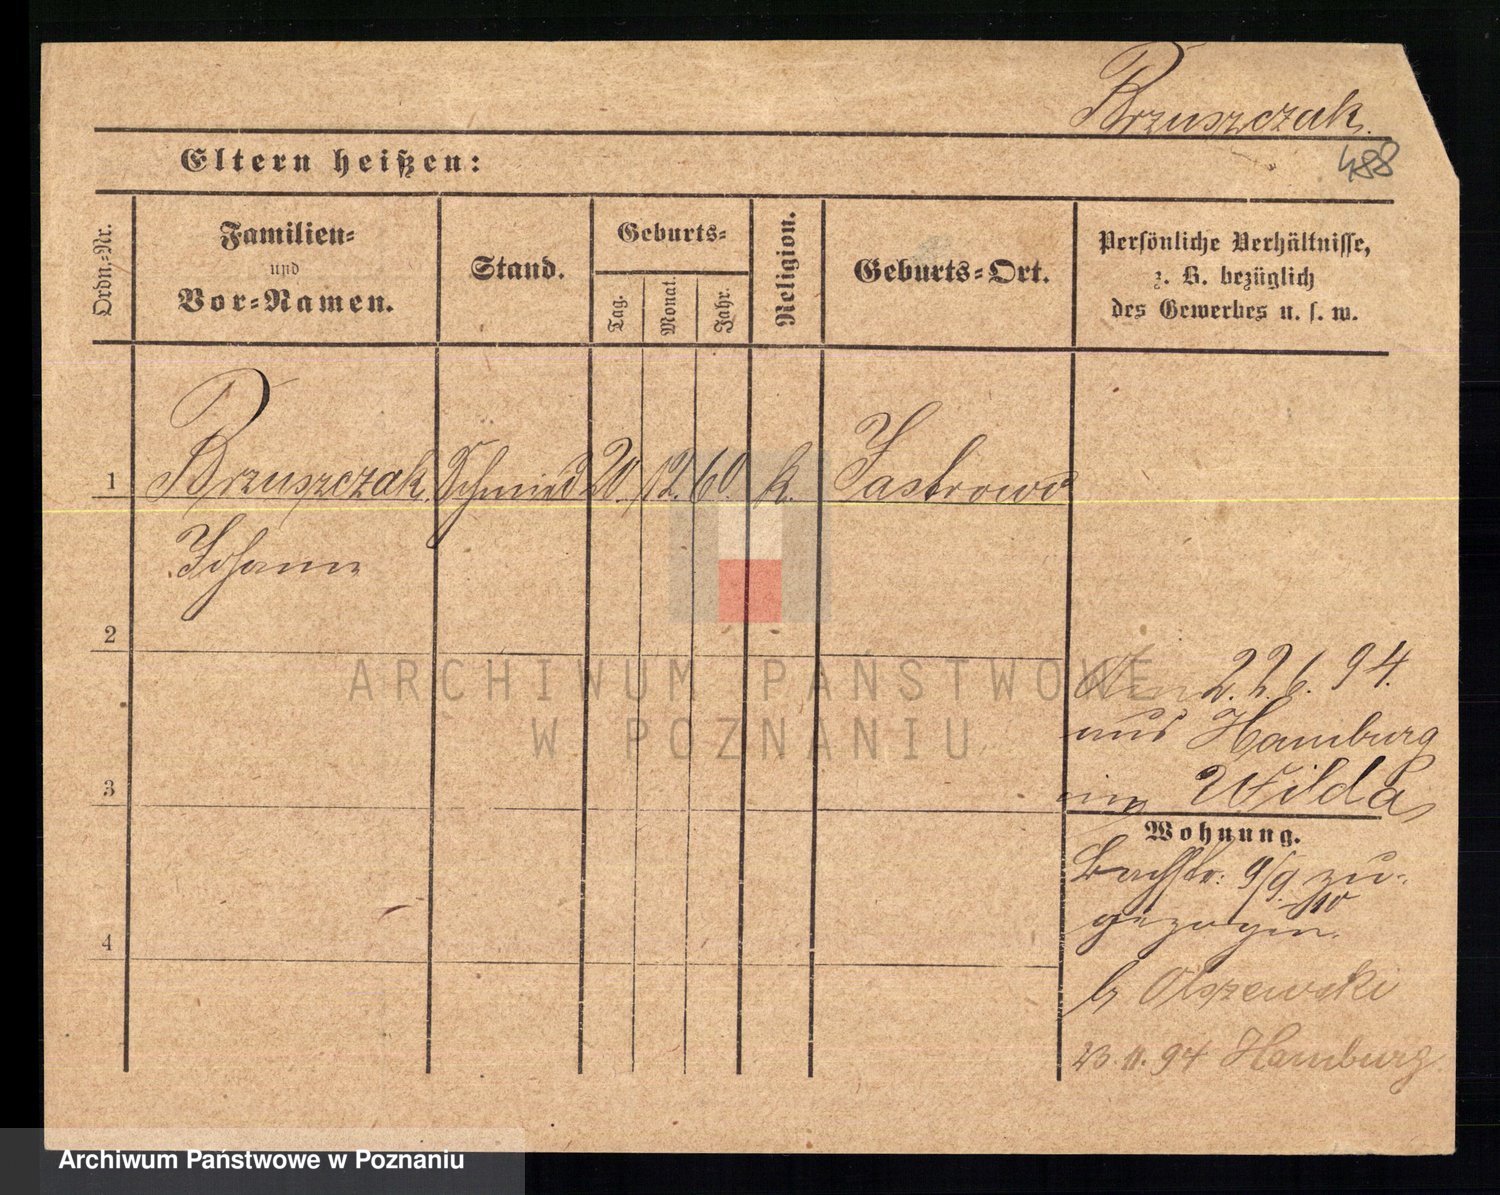 Brzuszczak.
488
Eltern heißen:
Ordn.-Nr.
Familien-
und
Vor-Namen.
Stand.
Geburts-
Tag.
Monat.
Jahr.
Religion.
Geburts-Ort.
Persönliche Verhältnisse,
z. B. bezüglich
des Gewerbes u. s. w.
1 Brzuszczak Schmied 20. 12. 60. k. Jastrowo
Johann
2
3
4
22.6.94.
aus Hamburg
in Wilda
Wohnung.
Bachstr: 9/9. zu-
gezogen.
b Olszewski
23.11.94 Hamburg
ARCHIWUM PAŃSTWOWE
W POZNANIU
Archiwum Państwowe w Poznaniu